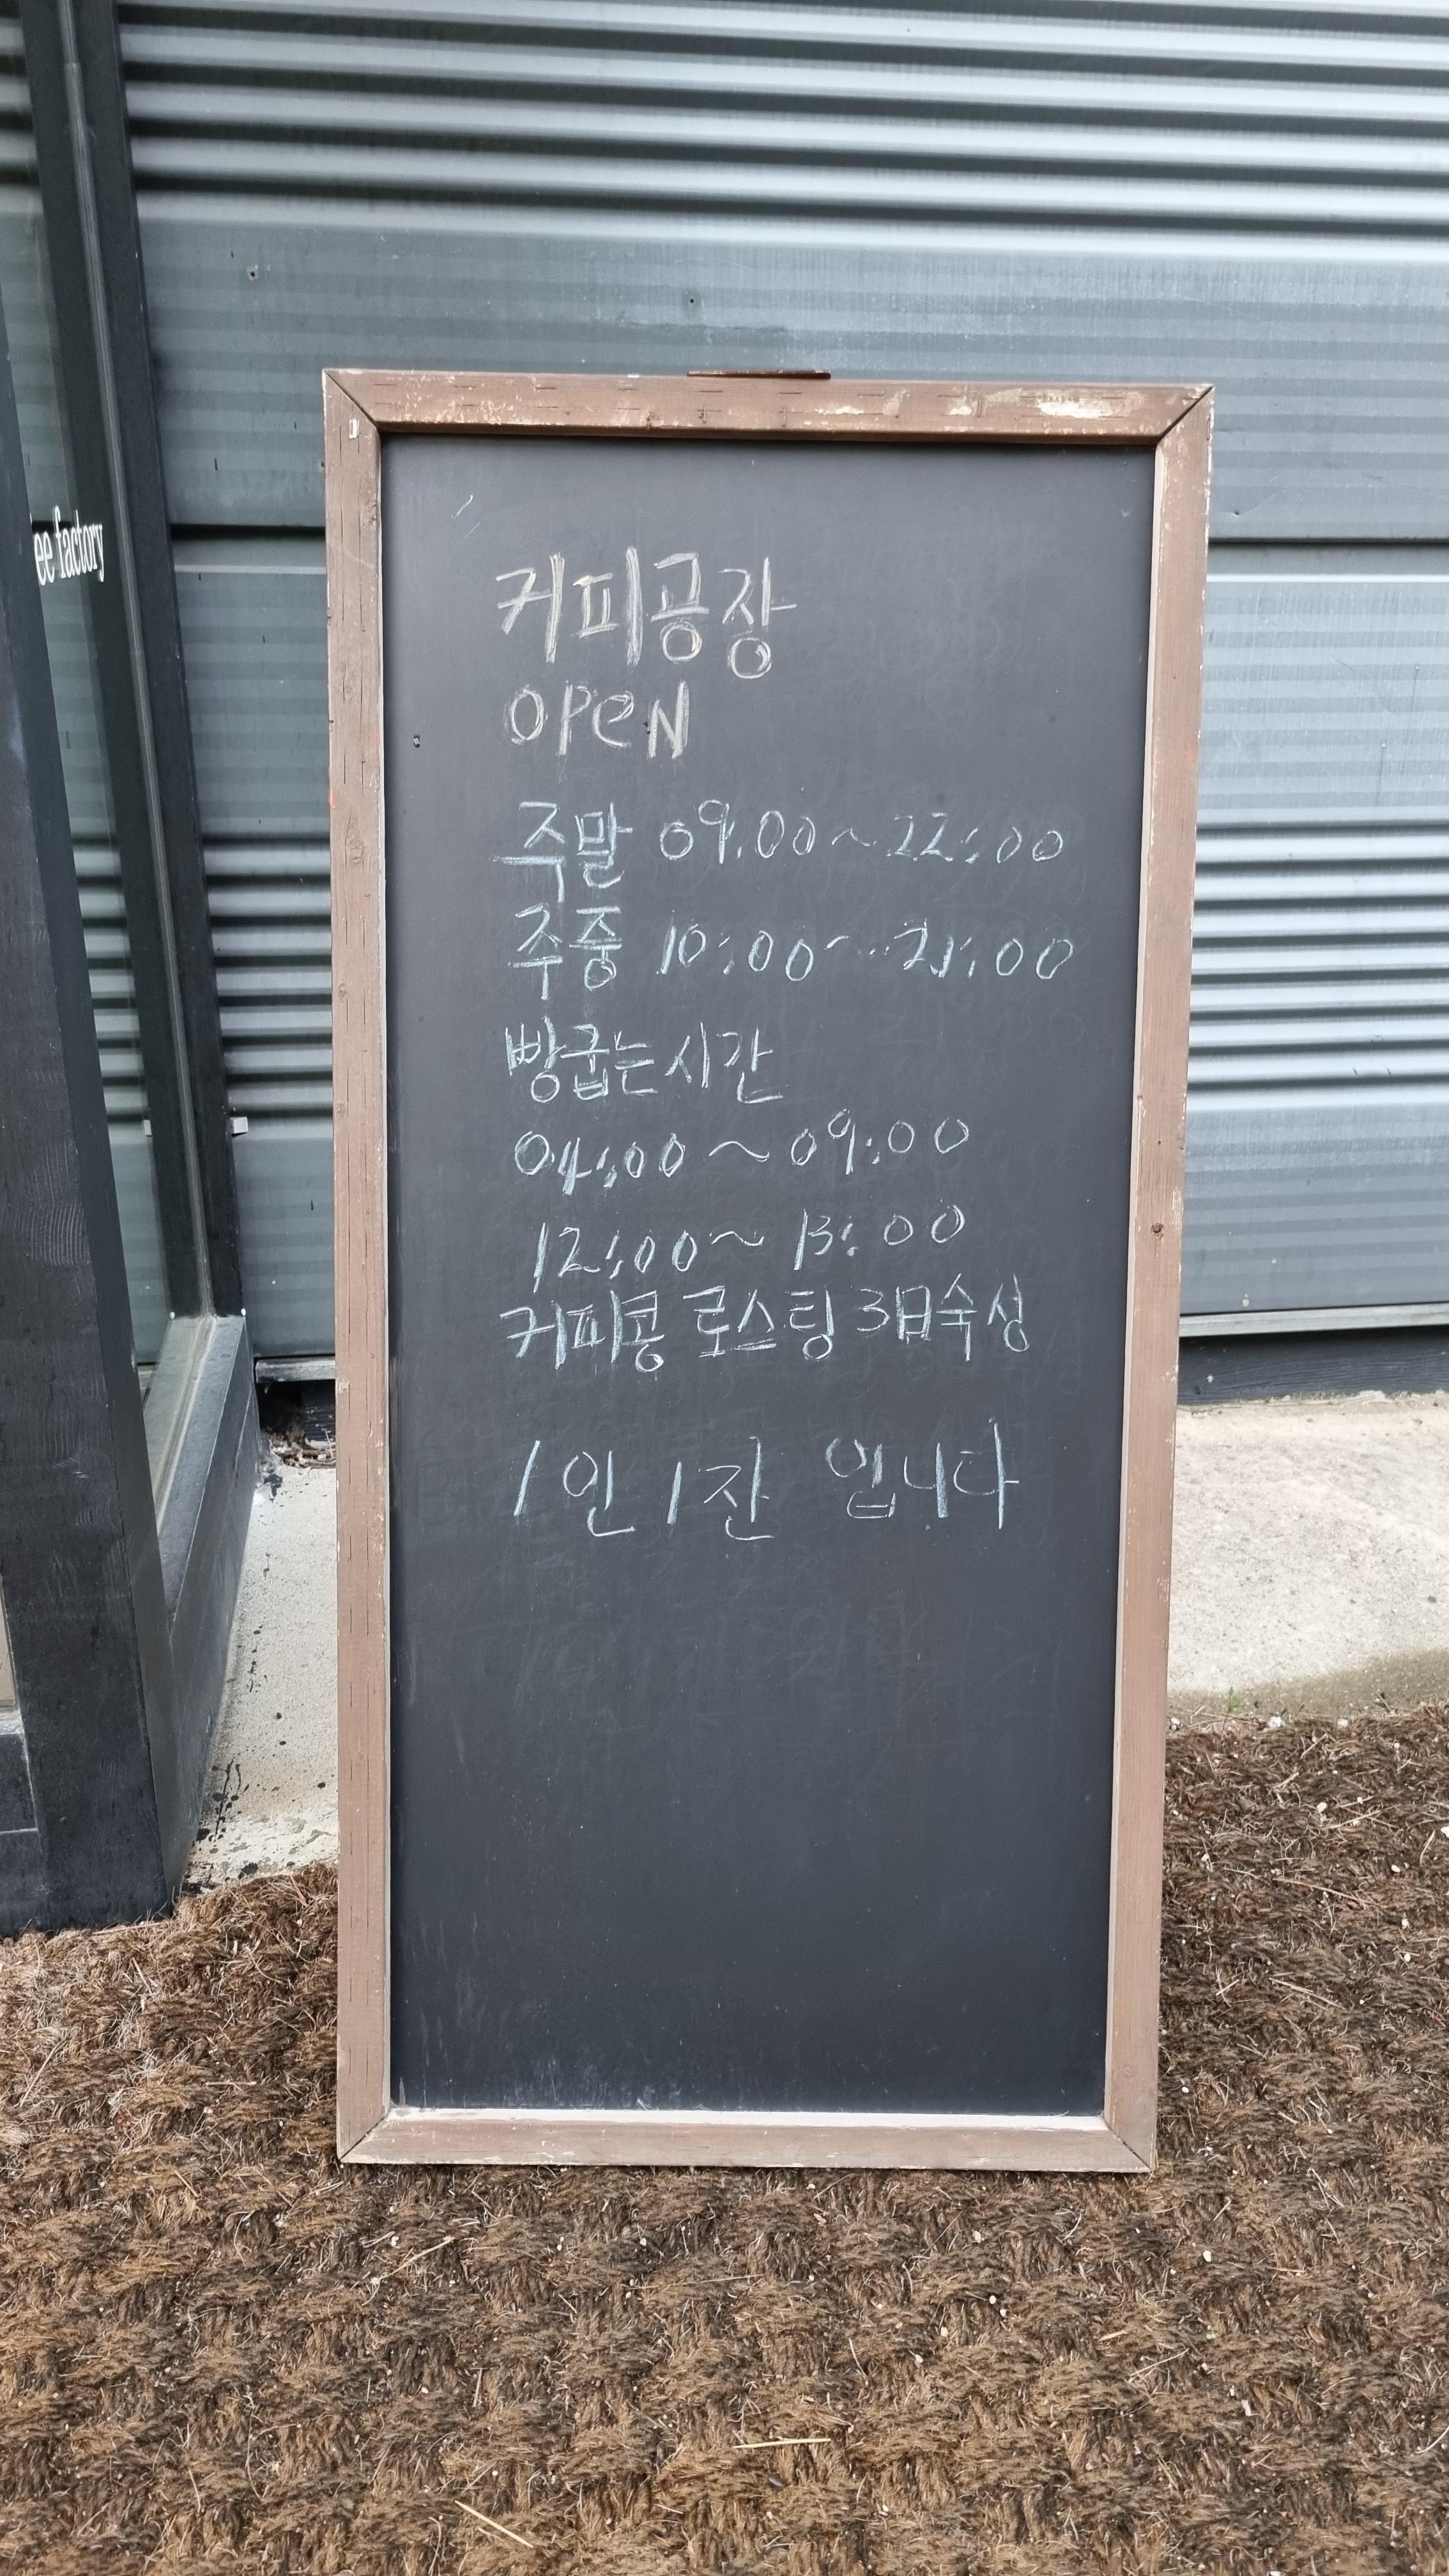 ee factory
커피공장
OPEN
주말 09:00~22:00
주중 10:00~21:00
빵굽는시간
04:00~09:00
12:00~13:00
커피콩 로스팅 3日숙성
1인 1잔 입니다